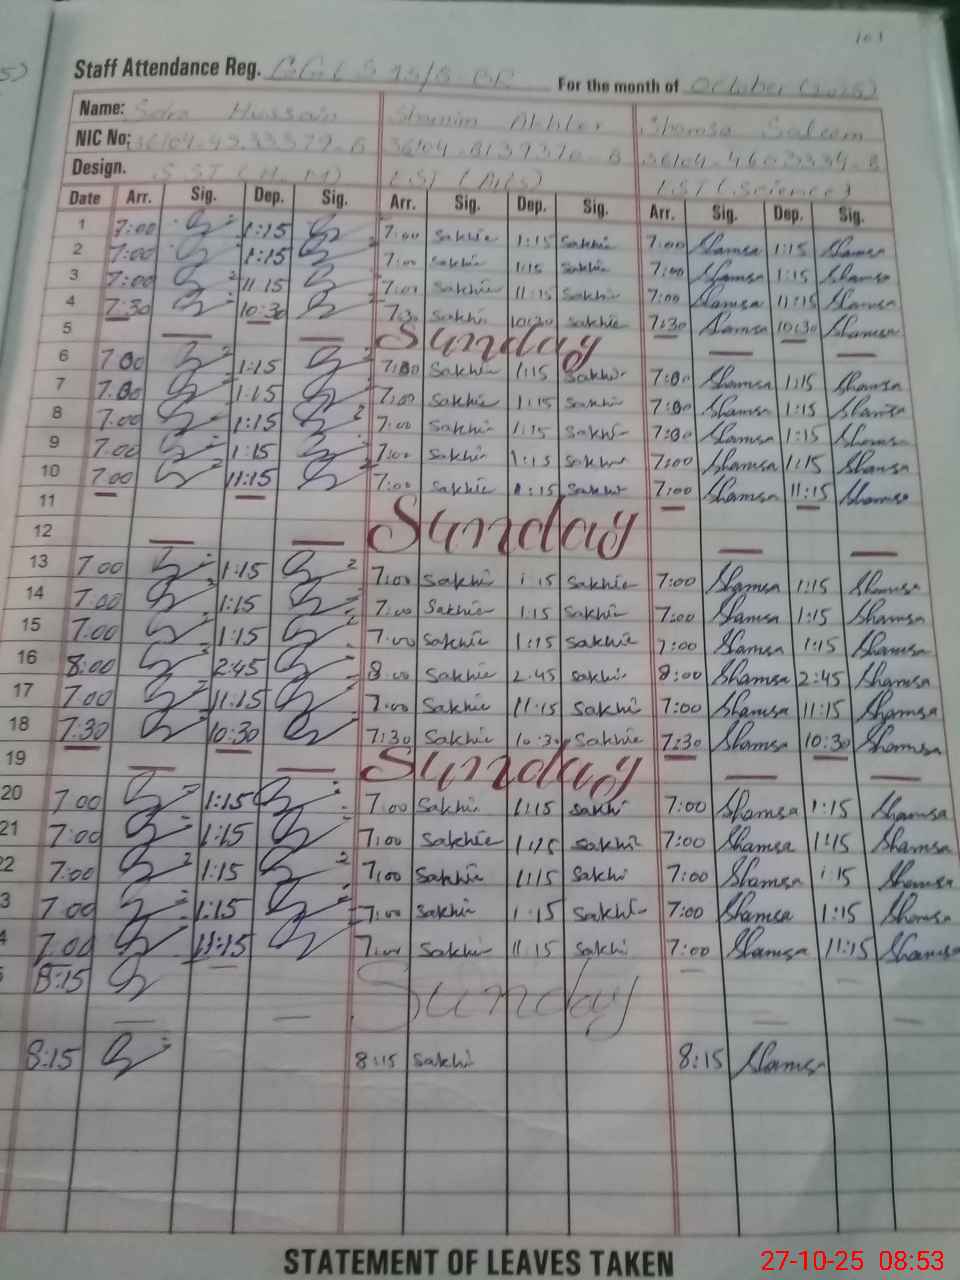 101
Staff Attendance Reg. For the month of October (2025)
Name: Sara Hussain Shamim Akhter Shamsa Saleem
NIC No:
Design. SST (H.M) EST (Arts) EST (Science)
Date Arr. Sig. Dep. Sig. Arr. Sig. Dep. Sig. Arr. Sig. Dep. Sig.
1 7:00 1:15 7:00 Sakhie 1:15 Sakhi 7:00 Shamsa 1:15 Shamsa
2 7:00 1:15 7:00 Sakhie 1:15 Sakhi 7:00 Shamsa 1:15 Shamsa
3 7:00 11:15 7:00 Sakhie 11:15 Sakhi 7:00 Shamsa 11:15 Shamsa
4 7:30 10:30 7:30 Sakhi 10:30 Sakhie 7:30 Shamsa 10:30 Shamsa
5 Sunday
6 7:00 1:15 7:00 Sakhi 1:15 Sakhi 7:00 Shamsa 1:15 Shamsa
7 7:00 1:15 7:00 Sakhi 1:15 Sakhi 7:00 Shamsa 1:15 Shamsa
8 7:00 1:15 7:00 Sakhi 1:15 Sakhi 7:00 Shamsa 1:15 Shamsa
9 7:00 1:15 7:00 Sakhi 1:15 Sakhi 7:00 Shamsa 1:15 Shamsa
10 7:00 11:15 7:00 Sakhie Sakhi 7:00 Shamsa 11:15 Shamsa
11
12 Sunday
13 7:00 1:15 7:00 Sakhi 1:15 Sakhie 7:00 Shamsa 1:15 Shamsa
14 7:00 1:15 7:00 Sakhie 1:15 Sakhi 7:00 Shamsa 1:15 Shamsa
15 7:00 1:15 7:00 Sakhie 1:15 Sakhie 7:00 Shamsa 1:15 Shamsa
16 8:00 2:45 8:00 Sakhie 2:45 Sakhi 8:00 Shamsa 2:45 Shamsa
17 7:00 11:15 7:00 Sakhie 11:15 Sakhi 7:00 Shamsa 11:15 Shamsa
18 7:30 10:30 7:30 Sakhie 10:30 Sakhie 7:30 Shamsa 10:30 Shamsa
19 Sunday
20 7:00 1:15 7:00 Sakhi 1:15 Sakhi 7:00 Shamsa 1:15 Shamsa
21 7:00 1:15 7:00 Sakhie 1:15 Sakhi 7:00 Shamsa 1:15 Shamsa
2 7:00 1:15 7:00 Sakhie 1:15 Sakhi 7:00 Shamsa 1:15 Shamsa
3 7:00 1:15 7:00 Sakhi 1:15 Sakhi 7:00 Shamsa 1:15 Shamsa
4 7:00 11:15 7:00 Sakhi 11:15 Sakhi 7:00 Shamsa 11:15 Shamsa
8:15
Sunday
8:15 8:15 Sakhi 8:15 Shamsa
STATEMENT OF LEAVES TAKEN
27-10-25 08:53